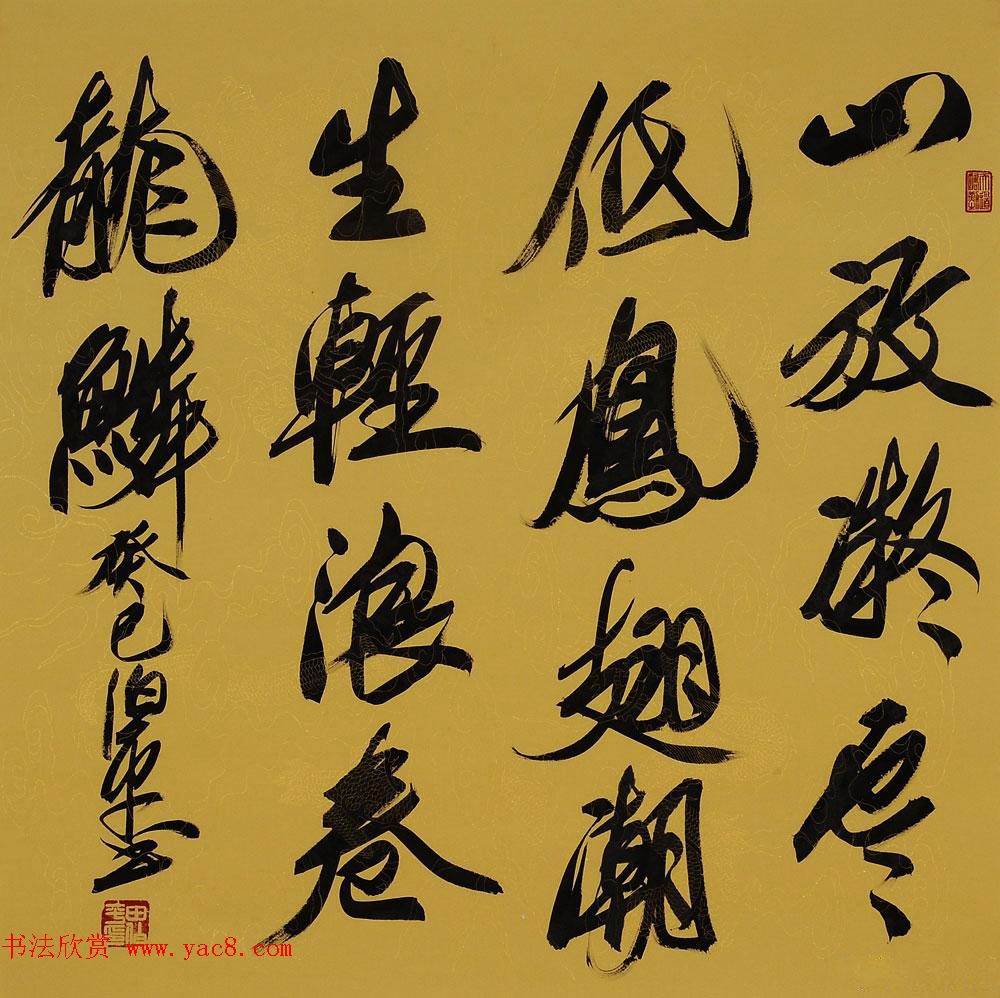 山放凝雲
低鳳翅潮
生輕浪卷
龍鱗癸巳
书法欣赏 www.yac8.com